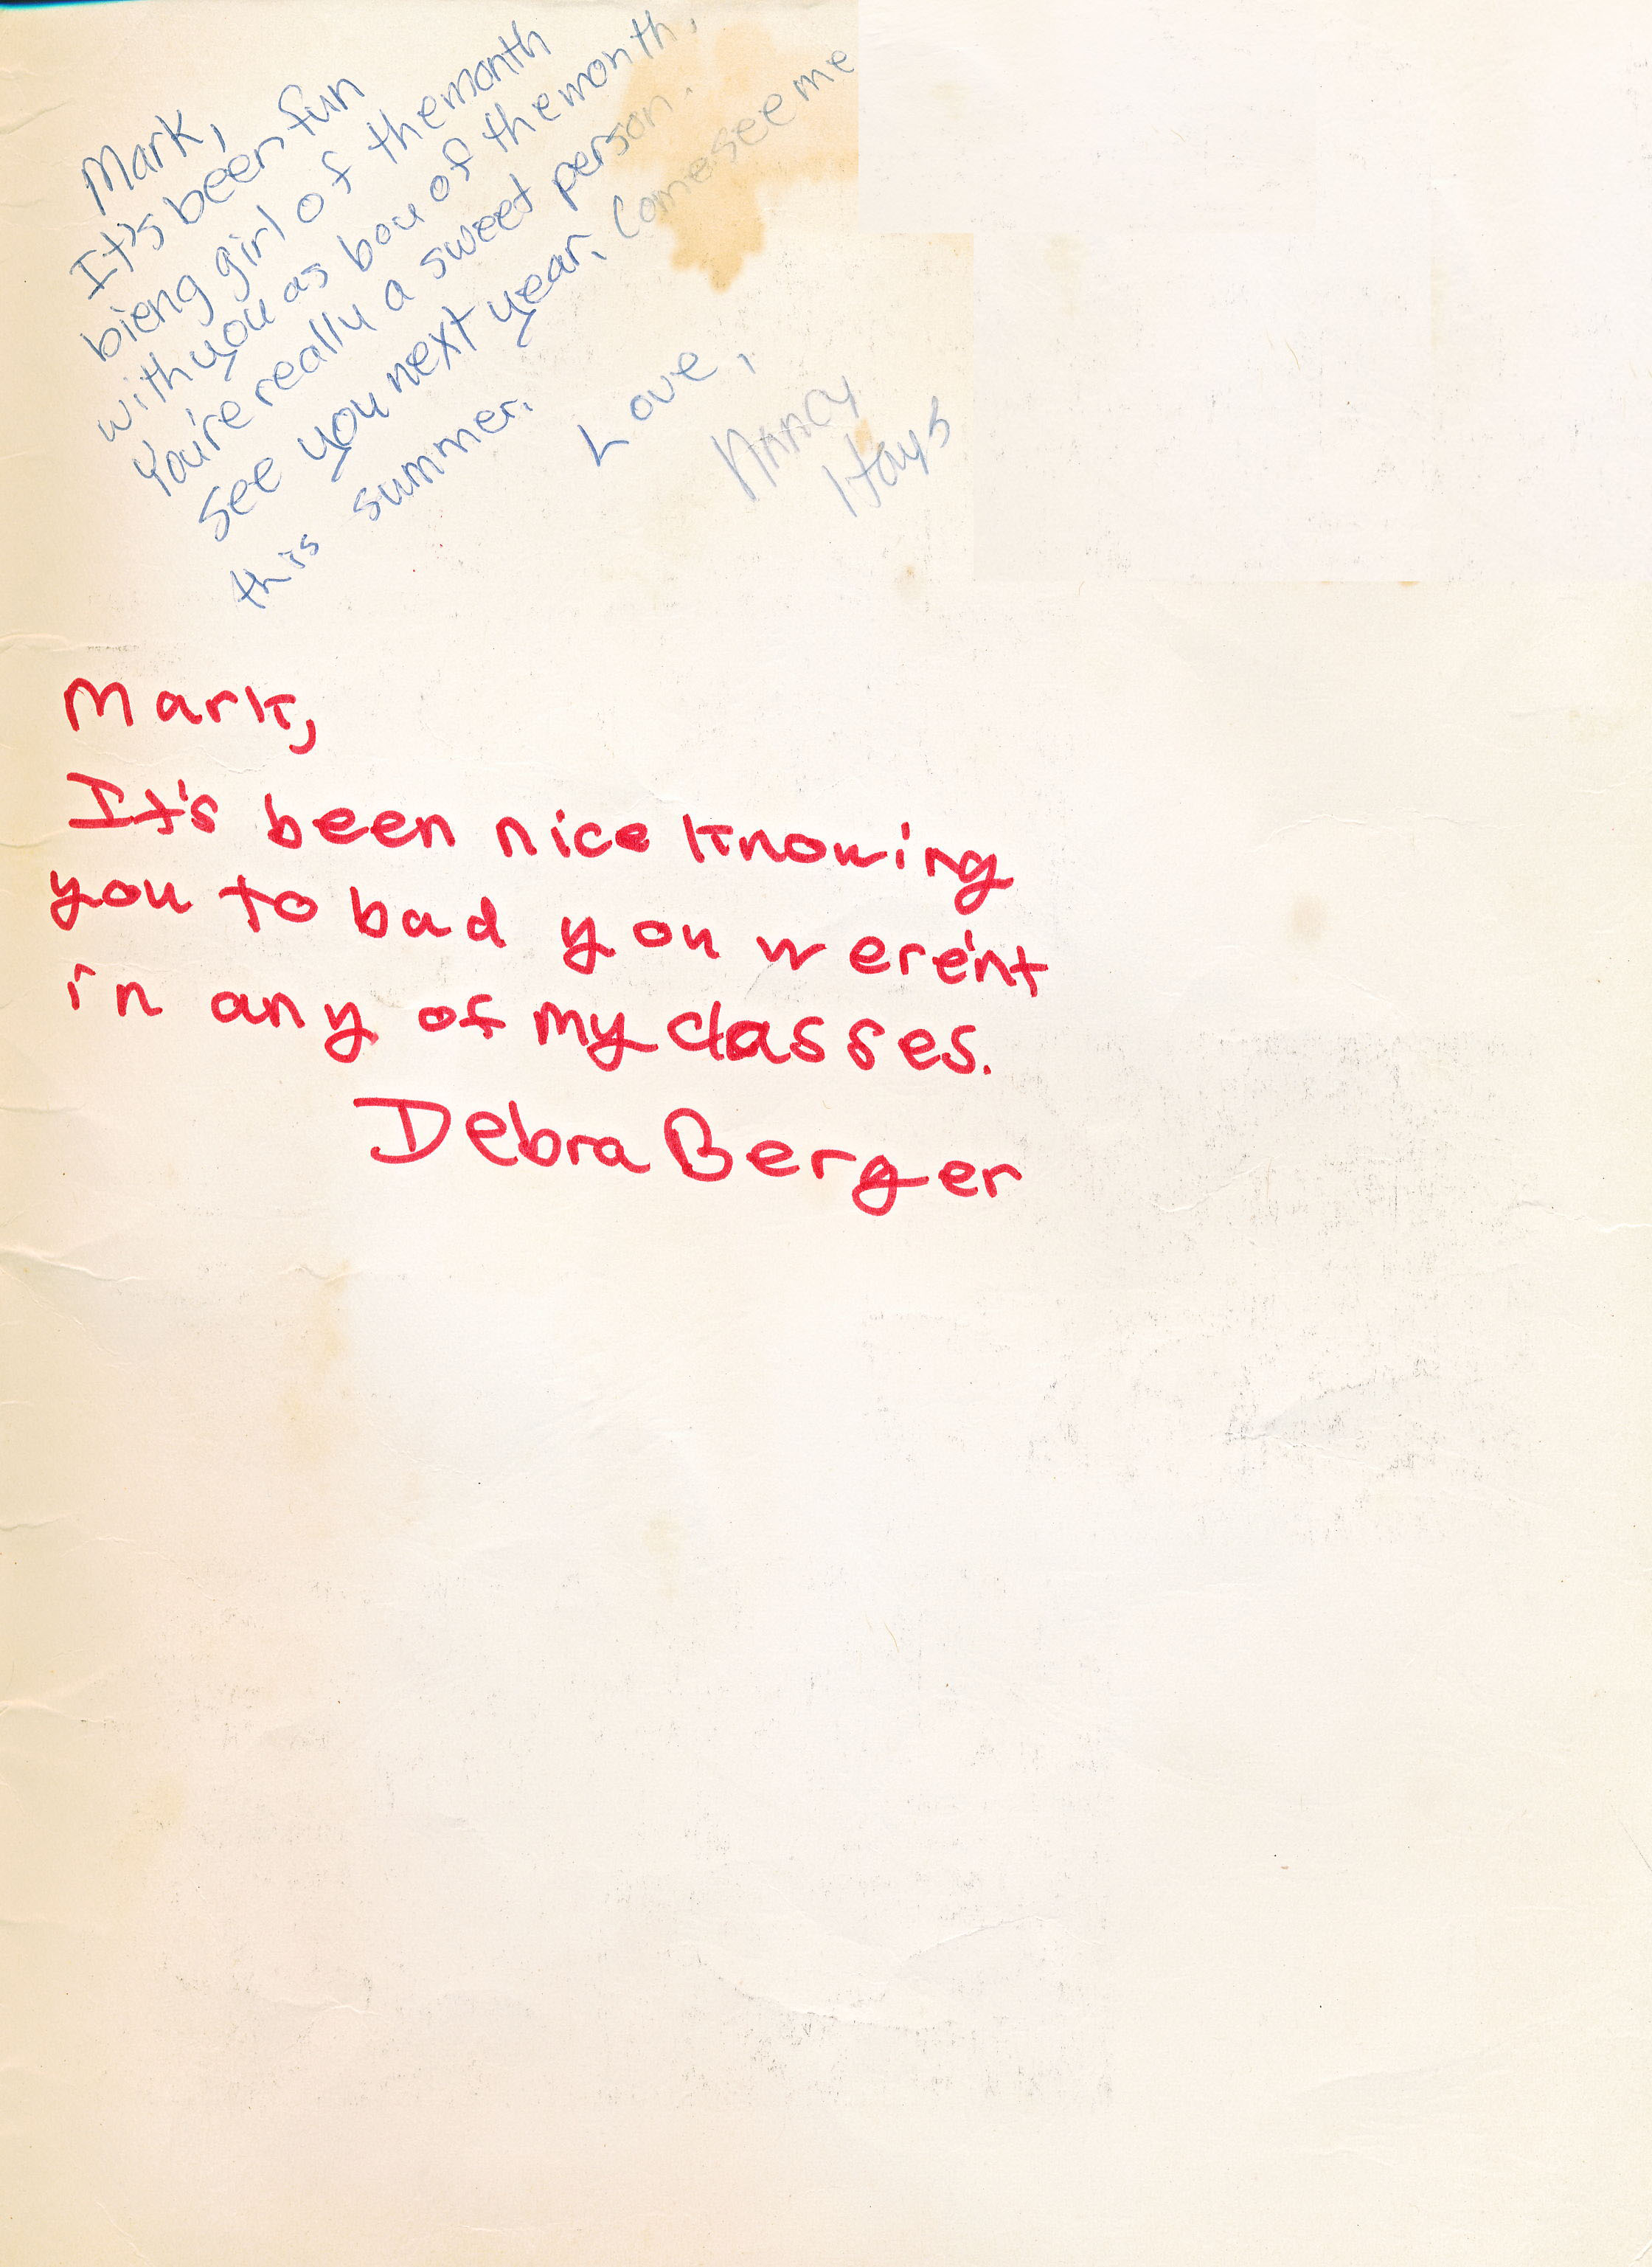 Mark,
It's been fun
bieng girl of the month
with you as boy of the month.
You're really a sweet person.
See you next year. Come see me
this summer.
Love,
Nancy
Hays
Mark,
It's been nice knowing
you to bad you were'nt
in any of my classes.
Debra Berger